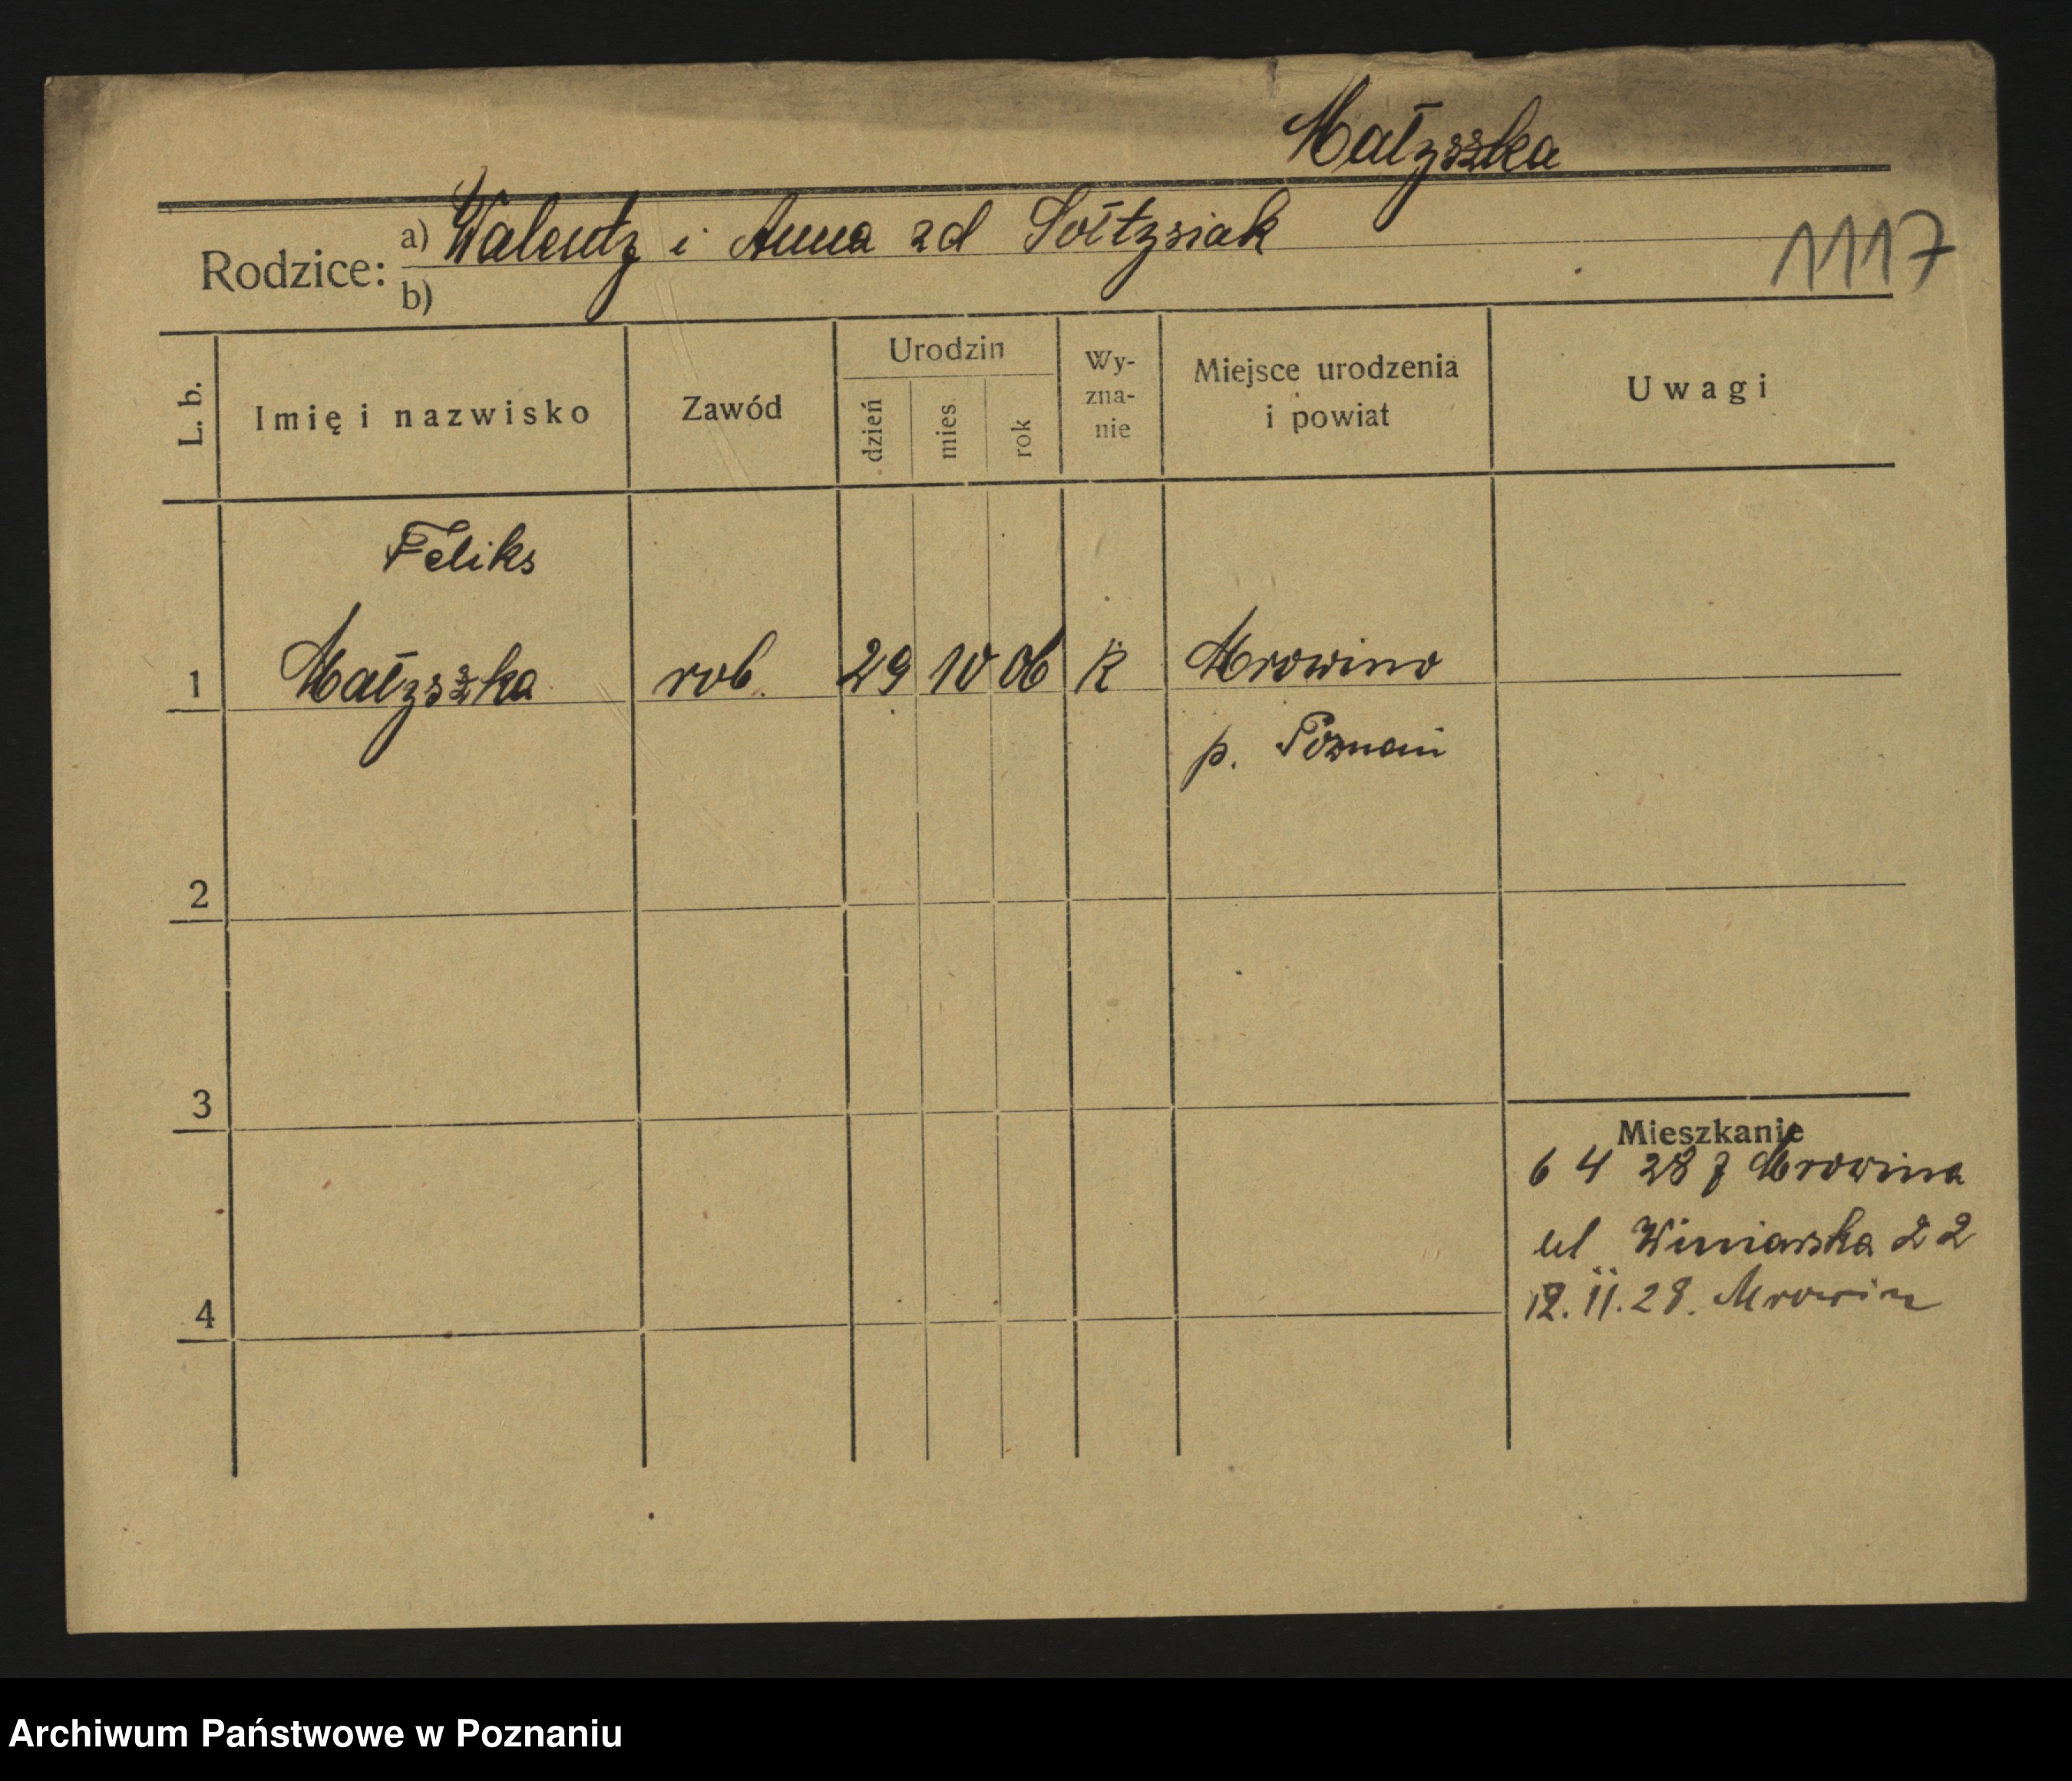 Małyszka
Rodzice: a) Walenty i Anna zd Sołtysiak
b)
1117
L. b. Imię i nazwisko Zawód Urodzin dzień mies. rok Wy-zna-nie Miejsce urodzenia i powiat Uwagi
Feliks
1 Małyszka rob. 29 10 06 k Mrowino
p. Poznań
2
3
Mieszkanie
6 4 28 z Mrowina
ul Winiarska 22
4 12. II. 28. Mrowin
Archiwum Państwowe w Poznaniu